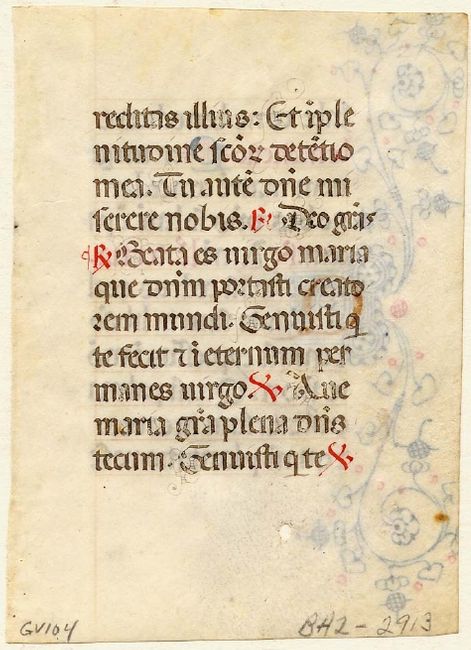 reditas illius: Et ı̄ ple
nitudine scōꝝ detētio
mea. Tu autē dn̄e mi
serere nobis. ℟ Deo grās
℟ Beata es uirgo maria
que dn̄m portasti creato
rem mundi. Genuisti q
te fecit ⁊ ī eternum per
manes uirgo ℣ Aue
maria grā plena dn̄s
tecum. Genuisti q te ℣
GV104 BH2-2913